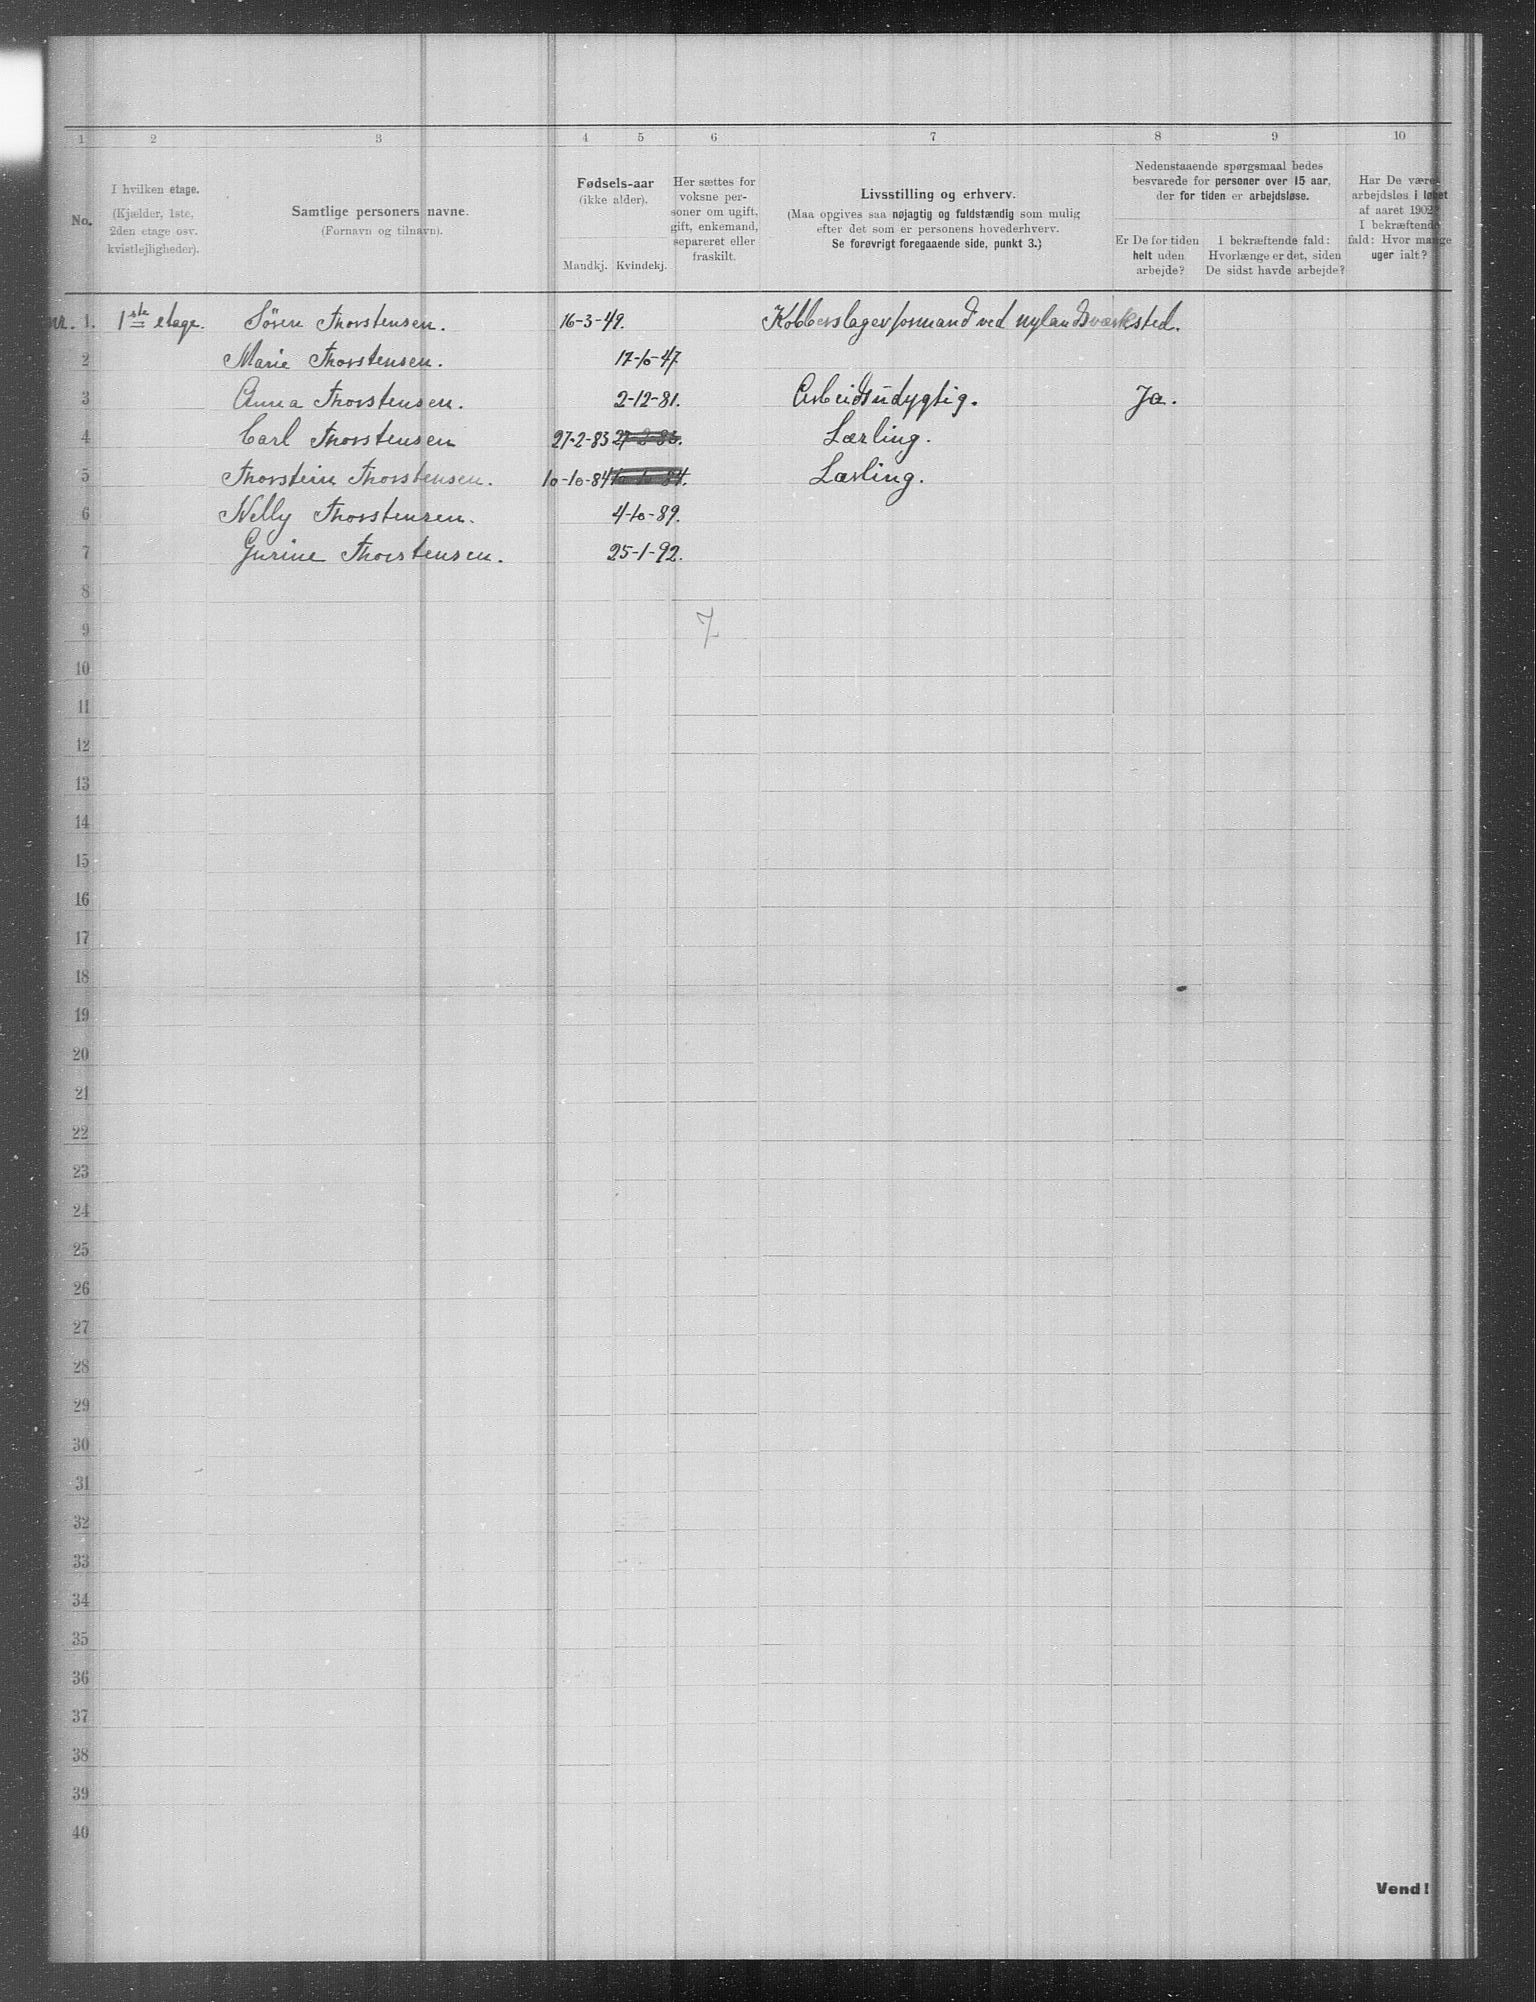 1 2 3 4 5 6 7 8 9 10
No.
I hvilken etage.
(Kjælder, 1ste,
2den etage osv.
kvistlejligheder).
Samtlige personers navne.
(Fornavn og tilnavn).
Fødsels-aar
(ikke alder).
Mandkj. Kvindekj.
Her sættes for
voksne per-
soner om ugift,
gift, enkemand,
separeret eller
fraskilt.
Livsstilling og erhverv.
(Maa opgives saa nøjagtig og fuldstændig som mulig
efter det som er personens hovederhverv.
Se forøvrigt foregaaende side, punkt 3.)
Nedenstaaende spørgsmaal bedes
besvarede for personer over 15 aar,
der for tiden er arbejdsløse.
Er De for tiden
helt uden
arbejde?
I bekræftende fald:
Hvorlænge er det, siden
De sidst havde arbejde?
Har De været
arbejdsløs i løbet
af aaret 1902?
I bekræftende
fald: Hvor mange
uger ialt?
nr. 1. 1ste etage. Sören Thorstensen. 16-3-49. Kobberslagerformand ved nylands værksted.
2 Marie Thorstensen. 17-10-47
3 Anna Thorstensen. 2-12-81. Arbeidsudygtig. Ja.
4 Carl Thorstensen 27-2-83 27-2-83. Lærling.
5 Thorstein Thorstensen. 10-10-84 10-10-84. Lærling.
6 Nelly Thorstensen. 4-10-89.
7 Gurine Thorstensen. 25-1-92.
8
9 7
10
11
12
13
14
15
16
17
18
19
20
21
22
23
24
25
26
27
28
29
30
31
32
33
34
35
36
37
38
39
40
Vend!